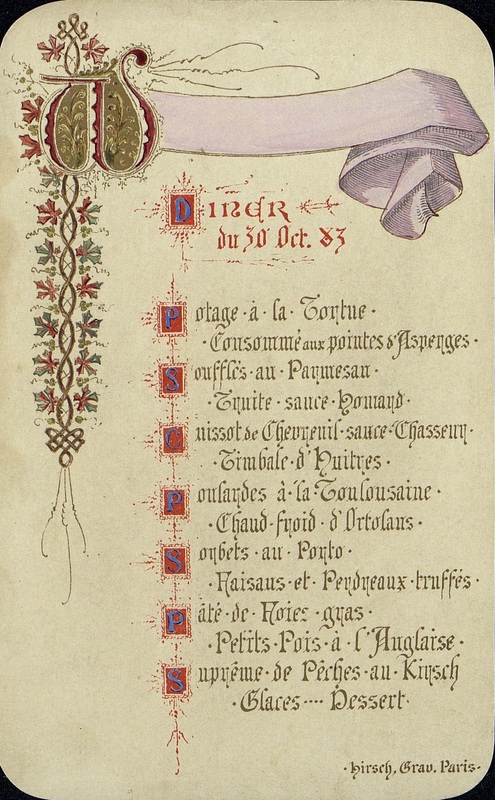 DINER
du 30 Oct. 83
Potage · à · la · Tortue ·
· Consommé aux pointes d'Asperges ·
Soufflés · au · Parmesan ·
· Truite · sauce · Homard ·
Cuissot de Chevreuil · sauce · Chasseur ·
Timbale · d'Huitres ·
Poulardes à · la · Toulousaine ·
· Chaud · froid · d'Ortolans ·
Sorbets · au · Porto ·
· Faisans · et · Perdreaux · truffés ·
Pâté · de · Foies · gras ·
· Petits · Pois · à · l'Anglaise ·
Suprême · de · Pêches · au · Kirsch
· Glaces ···· Dessert ·
· Hirsch, Grav. Paris ·